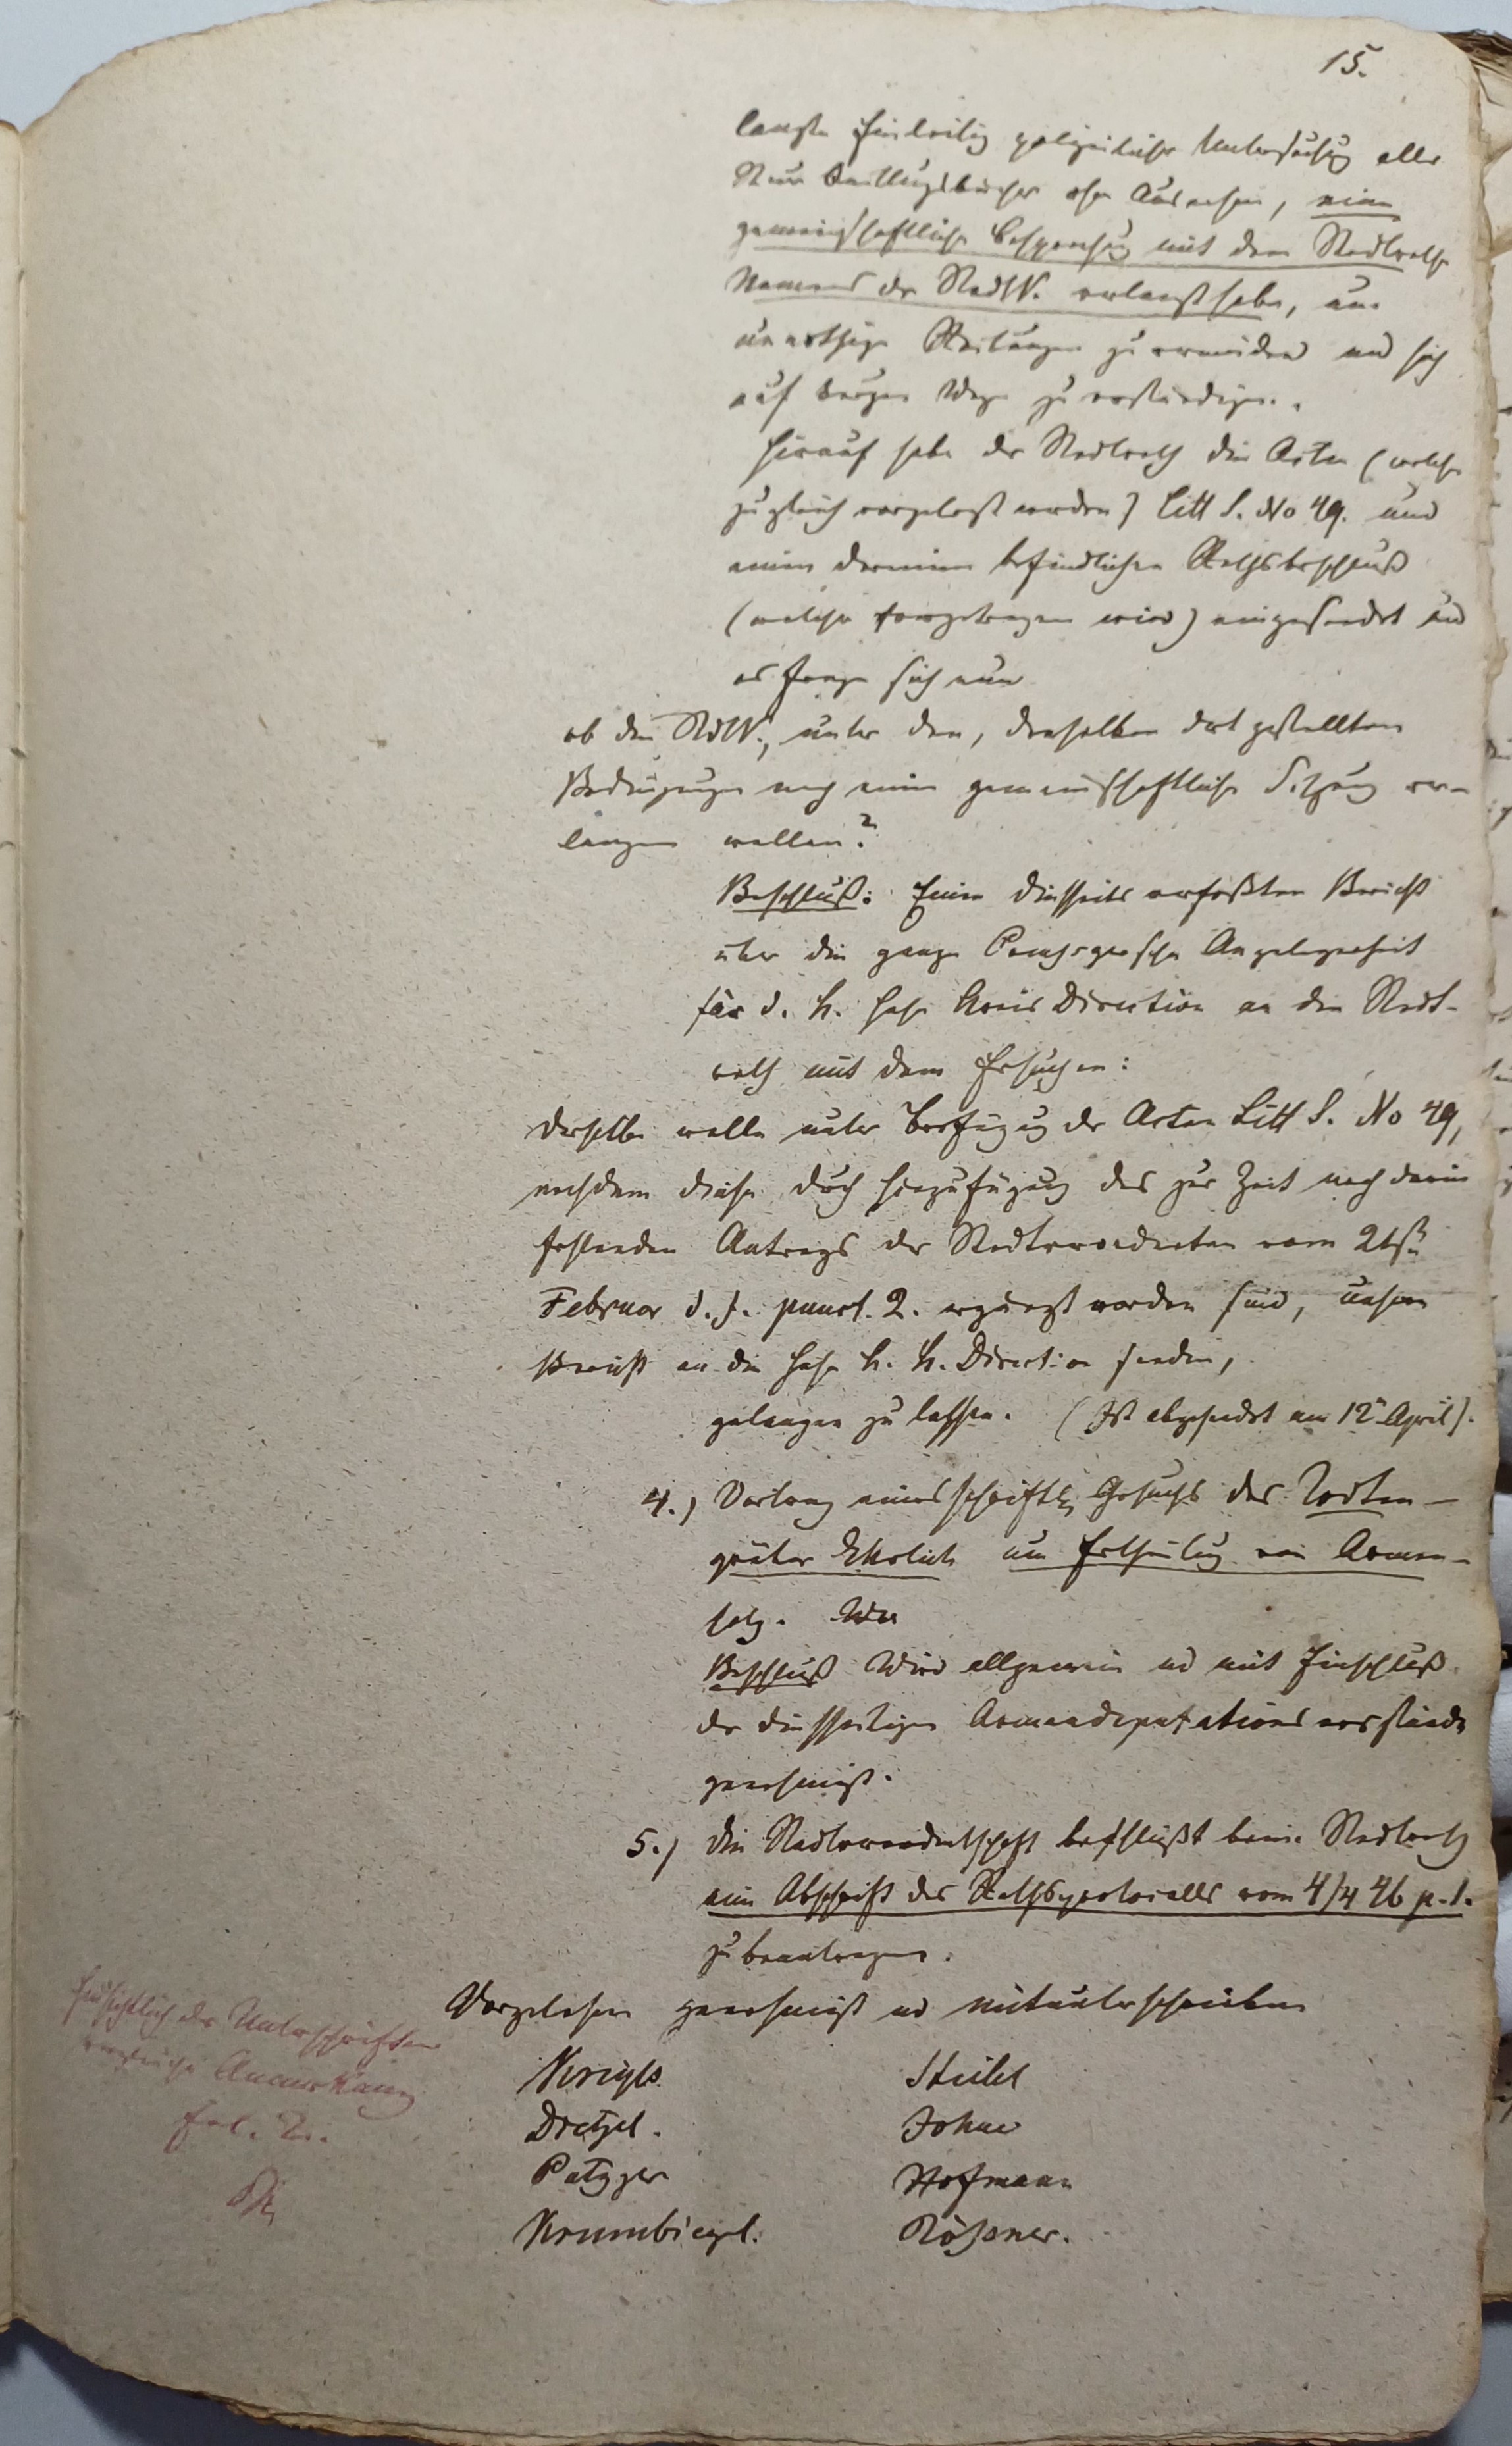 15.
langte hinleitig polizeiliche Untersuchung aller
Bücher ohne Ausnahme, eine
gemeinschaftliche Besprechung mit dem Stadtrathe
Namens der StadtV. verlangt habe, um
unnöthige Weiterungen zu vermeiden und sich
auf kurzem Wege zu verständigen.
Hierauf habe der Stadtrath die Acten (welche
zugleich vorgelegt werden) Litt S. No 49. und
einen darinnen befindlichen Rathsbeschluß
(welcher vorgetragen wird) eingesendet und
es frage sich nun
ob die StdtV., unter den, denselben dort gestellten
Bedingungen noch eine gemeinschaftliche Sitzung ver-
langen wollen?
Beschluß: Einen diesseits verfaßten Bericht
über die ganze Angelegenheit
für d. K. hohe Kreis Direction an den Stadt-
rath mit dem Ersuchen:
derselbe wolle unter Beifügung der Acten Litt S. No 49,
nachdem diese durch Hinzufügung des zur Zeit noch darin
fehlenden Antrags der Stadtverordneten vom 26sten
Februar d. J. punct. 2. ergänzt worden sind, unsern
Bericht an die hohe K. K. Direction senden,
gelangen zu lassen. (Ist abgesendet am 12n April).
4.) Vortrag eines schriftl. Gesuchs des Todten-
gräber Ehrlich um Ertheilung von Armen-
holz. Wu
Beschluß Wird allgemein und mit Einschluß
der diesseitigen Armendeputationsvorstände
genehmigt.
5.) Die Stadtverordnetschaft beschließt beim Stadtrath
eine Abschrift des Rathsprotocolls vom 4/4 46 p. 1.
zu beantragen.
Vorgelesen genehmigt und mitunterschrieben
Hinsichtlich der Unterschriften
vergleiche Anmerkung
fol. 2.
Krigls. Steibel
Dietzel. Johne
Patzger Hofmann
Krumbiegel. Rößner.